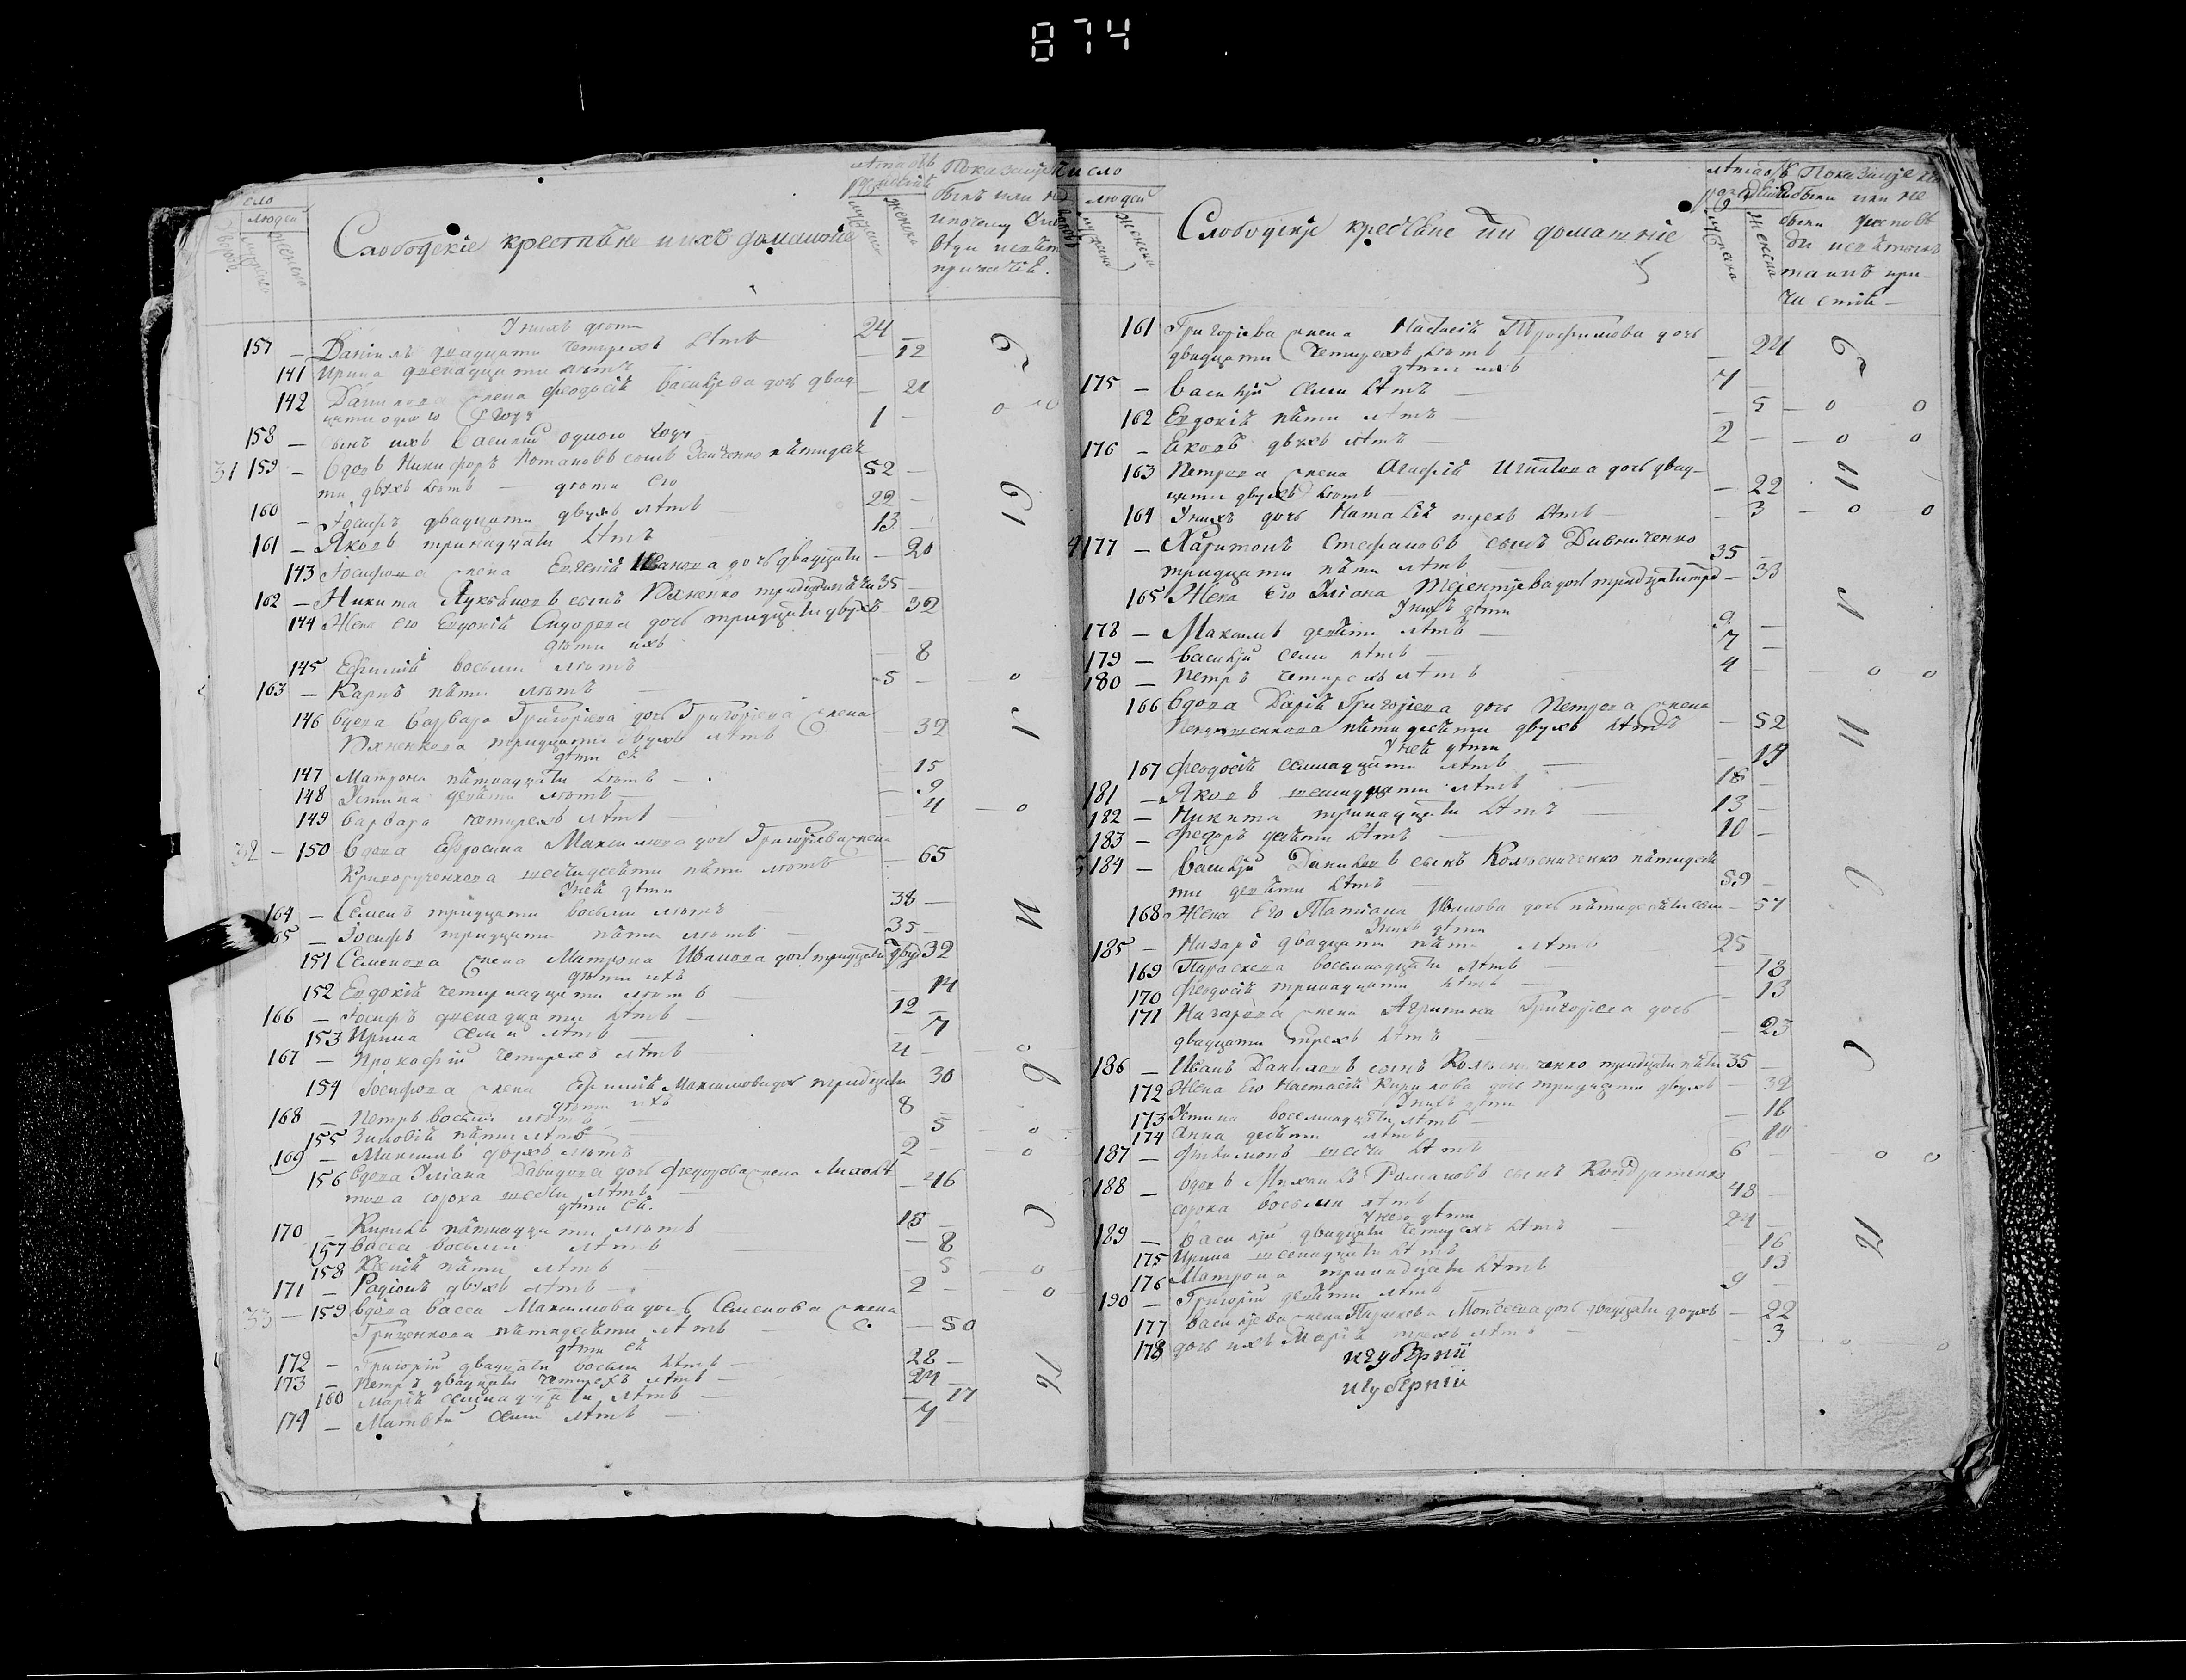 874
Слободскіе крестьяне и ихъ домашніе
У нихъ дѣти
157 — Даніилъ двадцати четирехъ лѣтъ 24 —
141 Ирина двенадцати лѣтъ — 12
142 Данилова жена Феодосія Василіева дочь двад
цати одного году — 21
158 — сынъ ихъ Василій одного году 1 — 0
31 159 — Вдовъ Никифоръ Потаповъ сынъ Заиченко пятидеся
ти двухъ лѣтъ — 52 —
дѣти его
160 — Іосифъ двадцати двухъ лѣтъ 22 —
161 — Яковъ тринадцати лѣтъ 13 —
143 Іосифова жена Евгенія Иванова дочь двадцати — 20
162 — Никита Лукьяновъ сынъ Яхненко тридцати пяти 35 —
144 Жена его Евдокія Сидорова дочь тридцати двухъ 32
дѣти ихъ
145 Ефимія восьми лѣтъ — 8
163 — Карпъ пяти лѣтъ 5 — 0
146 Вдова Варвара Григоріева дочь Григоріева жена
Яхненкова тридцати двухъ лѣтъ — 32
дѣти ея
147 Матрона пятнадцати лѣтъ — 15
148 Устина девяти лѣтъ — 9
149 Варвара четирехъ лѣтъ — 4 — 0
32 — 150 Вдова Ефросина Максимова дочь Григоріева жена
Криворученкова шестидесяти пяти лѣтъ — 65
У ней дѣти
164 — Семенъ тридцати восьми лѣтъ 38 —
165 — Іосифъ тридцати пяти лѣтъ 35 —
151 Семенова жена Матрона Иванова дочь тридцати двух 32
дѣти ихъ
152 Евдокія четирнадцати лѣтъ — 14
166 — Іосифъ двенадцати лѣтъ 12 —
153 Ирина семи лѣтъ — 7
167 — Прокофій четирехъ лѣтъ 4 — 0
154 Іосифова жена Ефимія Максимова дочь тридцати 30
дѣти ихъ
168 — Петръ восьми лѣтъ 8 —
155 Зиновія пяти лѣтъ — 5 0
169 — Максимъ двухъ лѣтъ 2 — 0
156 Вдова Уліана Давидова дочь Федорова жена
сорока шести лѣтъ — 46
дѣти ея
170 — Кирилъ пятнадцати лѣтъ 15 —
157 Васса восьми лѣтъ — 8
158 Ксенія пяти лѣтъ — 5 — 0
171 — Родіонъ двухъ лѣтъ 2 — 0
33 — 159 Вдова Васса Максимова дочь Семенова жена
Гриценкова пятидесяти лѣтъ — 50
дѣти ея
172 — Григорій двадцати восьми лѣтъ 28 —
173 — Петръ двадцати четирехъ лѣтъ 24 —
160 Марія семнадцати лѣтъ — 17
174 — Матвѣй семи лѣтъ 7 —
Слободскіе крестьяне и домашніе
161 Григоріева жена Настасія Трофимова дочь
двадцати четирехъ лѣтъ — 24
дѣти ихъ
175 — Василій семи лѣтъ 7 —
162 Евдокія пяти лѣтъ — 5 — 0 0
176 — Яковъ двухъ лѣтъ 2 — 0 0
163 Петрова жена Агафія Игнатова дочь двад-
цати двухъ лѣтъ — 22
164 У нихъ дочь Наталія трехъ лѣтъ — 3 — 0 0
177 — Харитонъ Стефановъ сынъ Дивниченко
тридцати пяти лѣтъ 35 —
165 Жена его Уліана Терентіева дочь тридцати тре — 33
У нихъ дѣти
178 — Максимъ девяти лѣтъ 9 —
179 — Василій семи лѣтъ 7 —
180 — Петръ четирехъ лѣтъ 4 0 0
166 Вдова Дарія Григоріева дочь Петрова жена
пятидесяти двухъ лѣтъ — 52
У ней дѣти
167 Феодосія семнадцати лѣтъ — 17
181 — Яковъ шеснадцати лѣтъ 16 —
182 — Никита тринадцати лѣтъ 13 —
183 — Федоръ десяти лѣтъ 10 —
184 — Василій Даниловъ сынъ Колесниченко пятидеся
ти девяти лѣтъ 59 —
168 Жена его Татіана Иванова дочь пятидесяти семи — 57
У нихъ дѣти
185 — Назаръ двадцати пяти лѣтъ 25 —
169 Параскева восемнадцати лѣтъ — 18
170 Феодосія тринадцати лѣтъ — 13
171 Назарова жена Агрипина Григоріева дочь
двадцати трехъ лѣтъ — 23
186 — Иванъ Даниловъ сынъ Колесниченко тридцати пяти 35 —
172 Жена его Настасія Кирилова дочь тридцати двухъ — 32
У нихъ дѣти
173 Устина восемнадцати лѣтъ — 18
174 Анна десяти лѣтъ — 10
187 — Филимонъ шести лѣтъ 6 — 0 0
188 — Вдовъ Михаилъ Романовъ сынъ Кондратенко
сорока восьми лѣтъ 48 —
У него дѣти
189 — Василій двадцати четирехъ лѣтъ 24 —
175 Ирина шеснадцати лѣтъ 16
176 Матрона тринадцати лѣтъ 13
190 — Григорій девяти лѣтъ 9 —
177 Василіева жена Параскева Моисеева дочь двадцати двухъ — 22
178 дочь ихъ Марія трехъ лѣтъ — 3 0 0
игуберніи
игуберніи